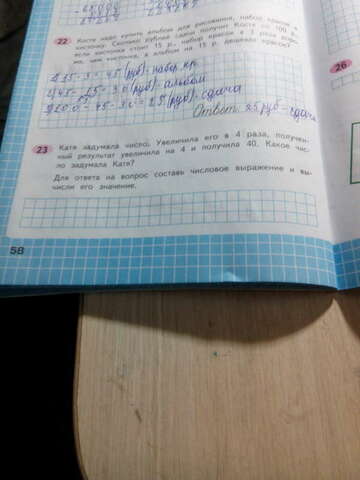 22 Косте надо купить альбом для рисования, набор красок и
кисточку. Сколько рублей сдачи получит Костя со 100 р.,
если кисточка стоит 15 р., набор красок в 3 раза
чем кисточка, а альбом на 15 р. дешевле красок?
1) 15 · 3 = 45 (руб) - набор кр.
2) 45 - 15 = 30 (руб) - альбом
45 - 30 = 25 (руб) - сдача
Ответ: 25 руб - сдача
26
23 Катя задумала число. Увеличила его в 4 раза, получен-
ный результат увеличила на 4 и получила 40. Какое чис-
ло задумала Катя?
Для ответа на вопрос составь числовое выражение и вы-
числи его значение.
58